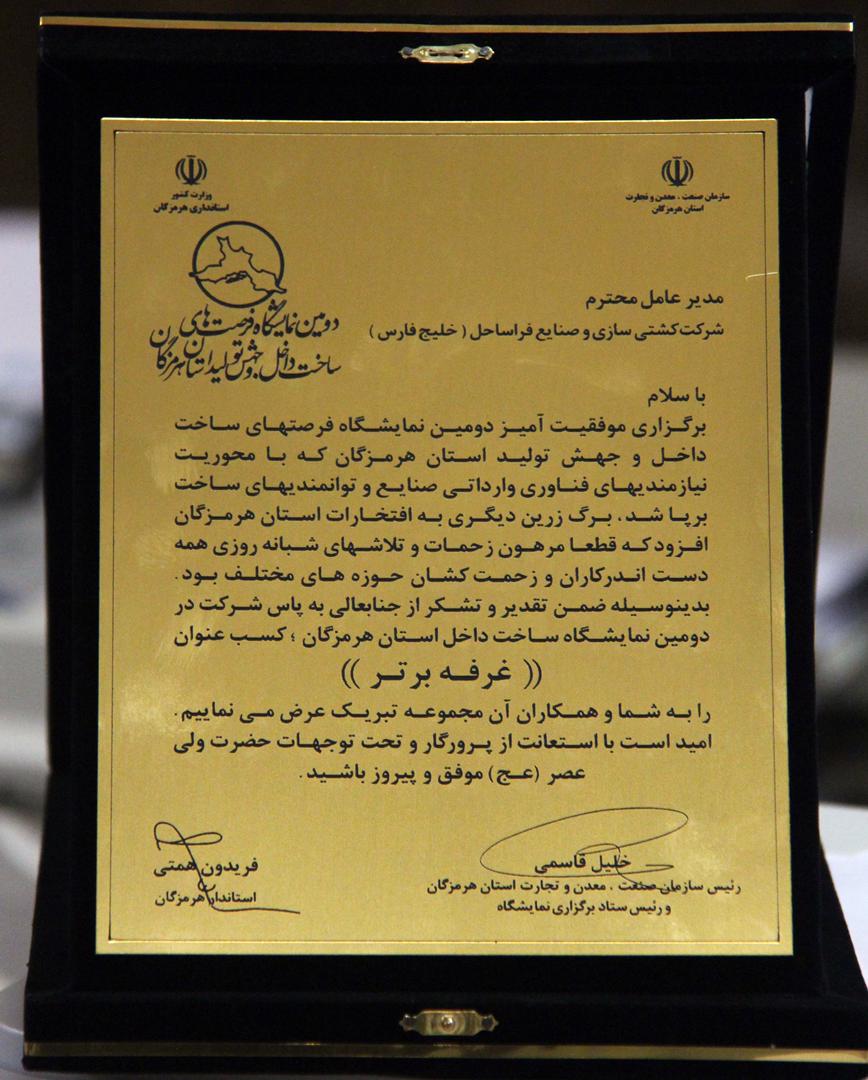 سازمان صنعت ، معدن و تجارت
استان هرمزگان
وزارت کشور
استانداری هرمزگان
دومین نمایشگاه فرصت های
ساخت داخل و جهش تولید استان هرمزگان
مدیر عامل محترم
شرکت کشتی سازی و صنایع فراساحل ( خلیج فارس )
با سلام
برگزاری موفقیت آمیز دومین نمایشگاه فرصتهای ساخت
داخل و جهش تولید استان هرمزگان که با محوریت
نیازمندیهای فناوری وارداتی صنایع و توانمندیهای ساخت
برپا شد، برگ زرین دیگری به افتخارات استان هرمزگان
افزود که قطعا مرهون زحمات و تلاشهای شبانه روزی همه
دست اندرکاران و زحمت کشان حوزه های مختلف بود.
بدینوسیله ضمن تقدیر و تشکر از جنابعالی به پاس شرکت در
دومین نمایشگاه ساخت داخل استان هرمزگان ؛ کسب عنوان
(( غرفه برتر ))
را به شما و همکاران آن مجموعه تبریک عرض می نماییم.
امید است با استعانت از پرورگار و تحت توجهات حضرت ولی
عصر (عج) موفق و پیروز باشید.
خلیل قاسمی
رئیس سازمان صنعت ، معدن و تجارت استان هرمزگان
و رئیس ستاد برگزاری نمایشگاه
فریدون همتی
استاندار هرمزگان